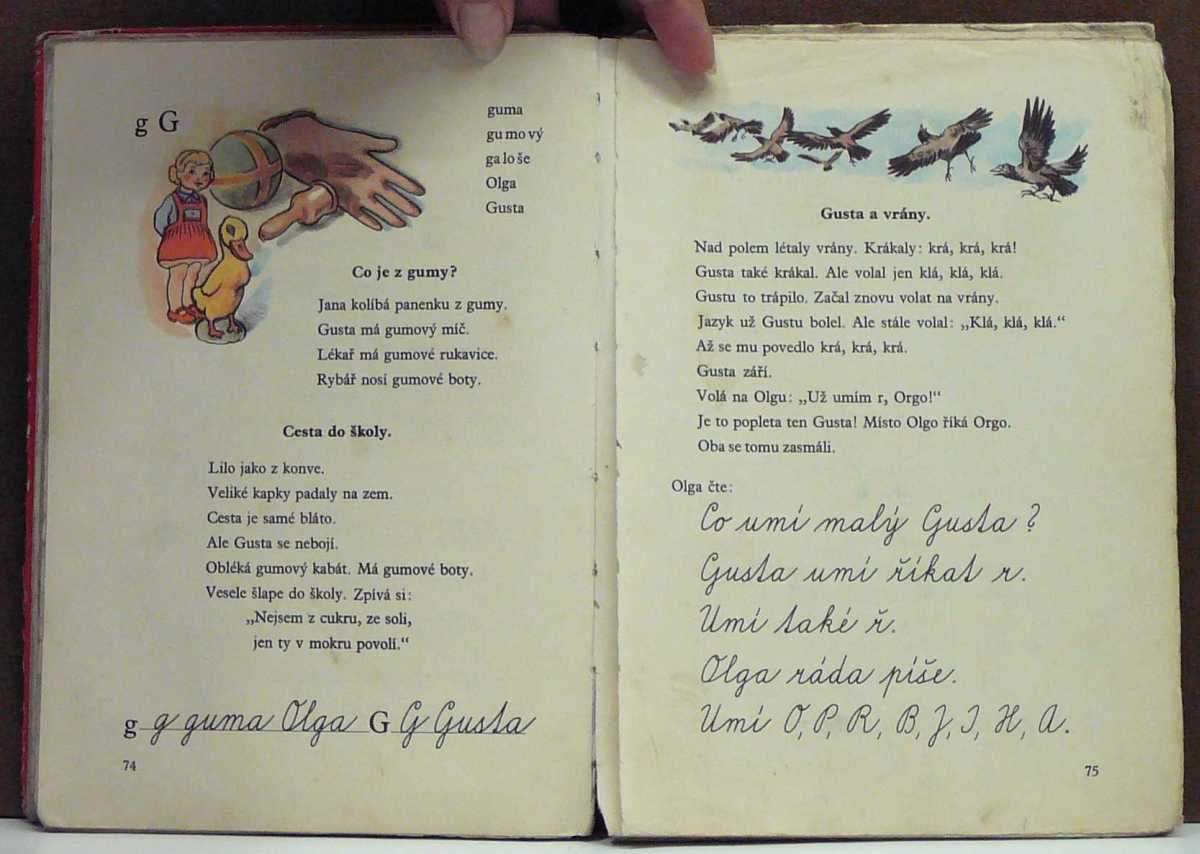 g G
guma
gumový
galoše
Olga
Gusta
Co je z gumy?
Jana kolíbá panenku z gumy.
Gusta má gumový míč.
Lékař má gumové rukavice.
Rybář nosí gumové boty.
Cesta do školy.
Lilo jako z konve.
Veliké kapky padaly na zem.
Cesta je samé bláto.
Ale Gusta se nebojí.
Obléká gumový kabát. Má gumové boty.
Vesele šlape do školy. Zpívá si:
„Nejsem z cukru, ze soli,
jen ty v mokru povolí.“
g g guma Olga G G Gusta
74
Gusta a vrány.
Nad polem létaly vrány. Krákaly: krá, krá, krá!
Gusta také krákal. Ale volal jen klá, klá, klá.
Gustu to trápilo. Začal znovu volat na vrány.
Jazyk už Gustu bolel. Ale stále volal: „Klá, klá, klá.“
Až se mu povedlo krá, krá, krá.
Gusta září.
Volá na Olgu: „Už umím r, Orgo!“
Je to popleta ten Gusta! Místo Olgo říká Orgo.
Oba se tomu zasmáli.
Olga čte:
Co umí malý Gusta?
Gusta umí říkat r.
Umí také ř.
Olga ráda píše.
Umí O, P, R, B, J, I, H, A.
75